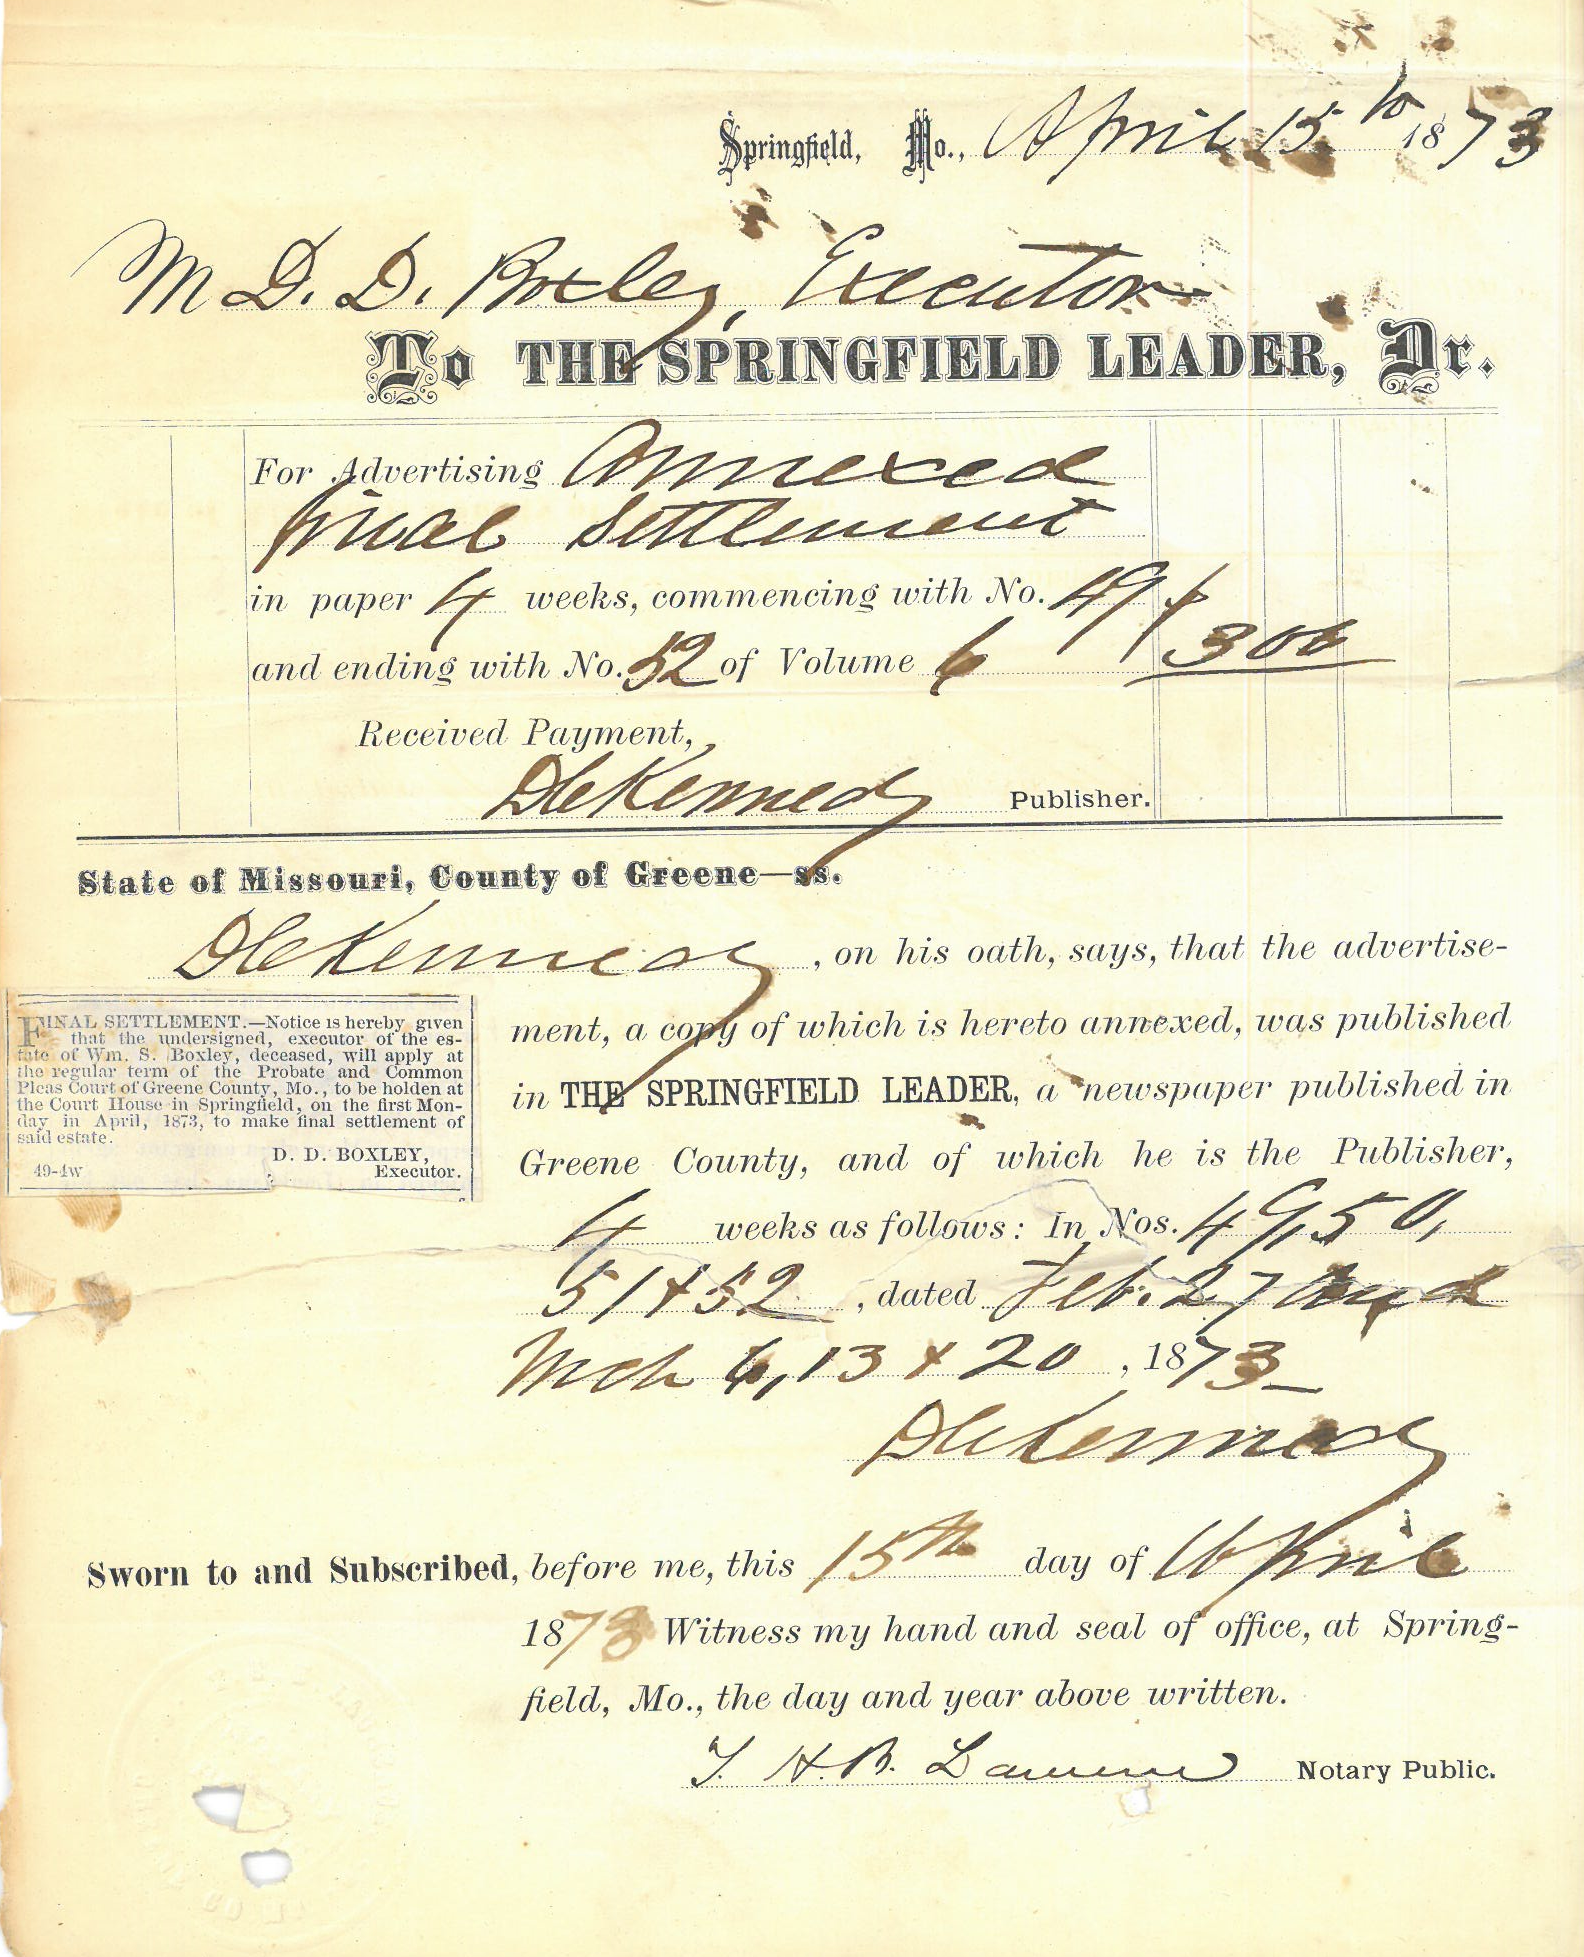 Springfield, Mo., April 15th 1873
M D. D. Boxley, Executor
To THE SPRINGFIELD LEADER, Dr.
For Advertising Annexed
final Settlement
in paper 4 weeks, commencing with No. 49
and ending with No. 52 of Volume 6 $ 3 00
Received Payment,
D C Kennedy Publisher.
State of Missouri, County of Greene—ss.
D C Kennedy, on his oath, says, that the advertise-
ment, a copy of which is hereto annexed, was published
in THE SPRINGFIELD LEADER, a newspaper published in
Greene County, and of which he is the Publisher,
4 weeks as follows: In Nos. 49, 50,
51 & 52, dated Feb. 27 and
Mch 6, 13 & 20, 1873
D C Kennedy
FINAL SETTLEMENT.—Notice is hereby given
that the undersigned, executor of the es-
tate of Wm. S. Boxley, deceased, will apply at
the regular term of the Probate and Common
Pleas Court of Greene County, Mo., to be holden at
the Court House in Springfield, on the first Mon-
day in April, 1873, to make final settlement of
said estate.
D. D. BOXLEY,
49-4w Executor.
Sworn to and Subscribed, before me, this 15th day of April
1873 Witness my hand and seal of office, at Spring-
field, Mo., the day and year above written.
H. B. Notary Public.